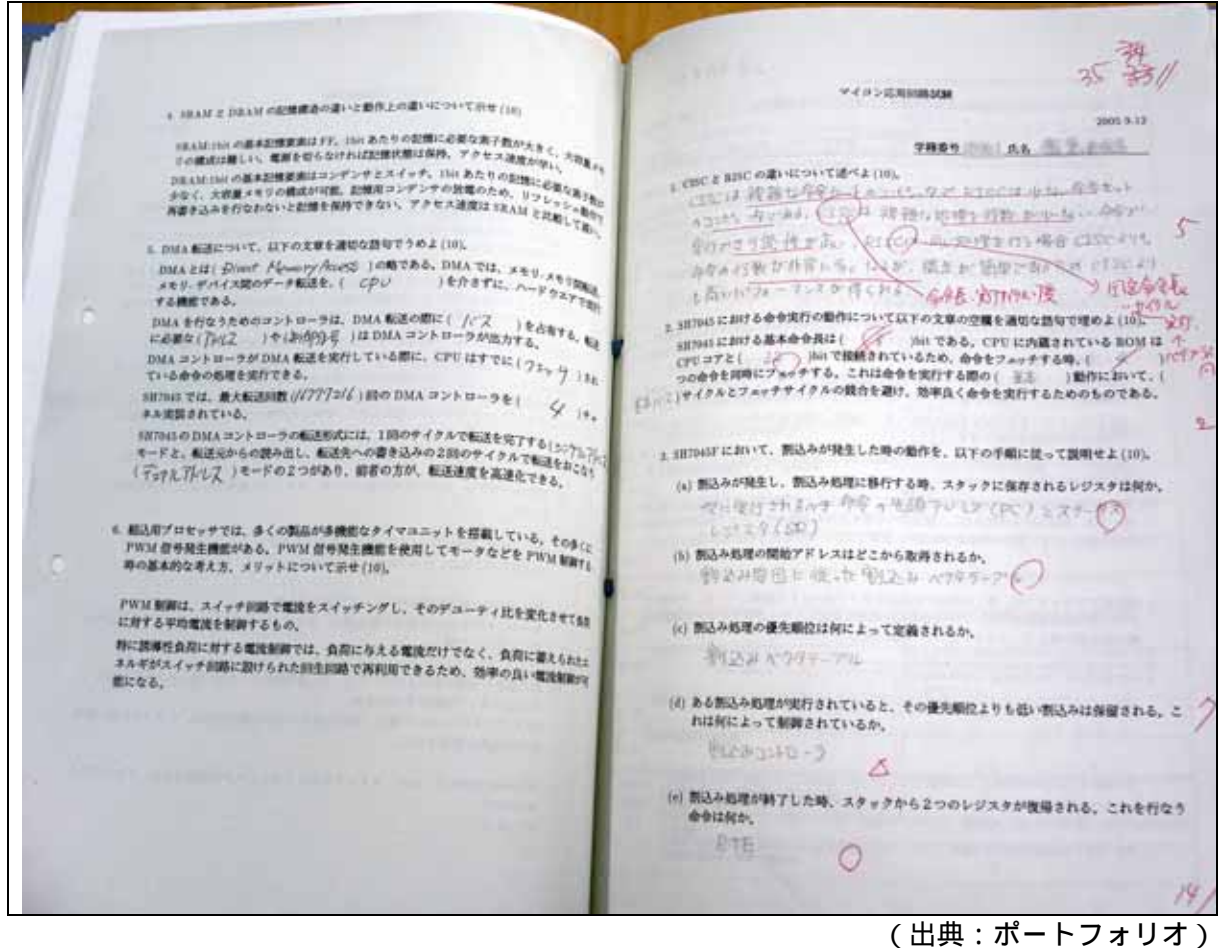 4. SRAM と DRAM の記憶構造の違いと動作上の違いについて示せ(10)
SRAM:1bit の基本記憶要素は FF。1bit あたりの記憶に必要な素子数が大きく、大容量メモ
リの構成は難しい。電源を切らなければ記憶状態は保持。アクセス速度が早い。
DRAM:1bit の基本記憶要素はコンデンサとスイッチ。1bit あたりの記憶に必要な素子数は
少なく、大容量メモリの構成が可能。記憶用コンデンサの放電のため、リフレッシュ動作で
再書き込みを行なわないと記憶を保持できない。アクセス速度は SRAM と比較して遅い。
5. DMA 転送について、以下の文章を適切な語句でうめよ(10)。
DMA とは( Direct Memory Access )の略である。DMA では、メモリ-メモリ間転送、
メモリ-デバイス間のデータ転送を、( CPU )を介さずに、ハードウエアで実行
する機能である。
DMA を行なうためのコントローラは、DMA 転送の際に( バス )を占有する。転送
に必要な(アドレス )や(制御信号 )は DMA コントローラが出力する。
DMA コントローラが DMA 転送を実行している際に、CPU はすでに(フェッチ )され
ている命令の処理を実行できる。
SH7045 では、最大転送回数(16777216 )回の DMA コントローラを( 4 )チャ
ネル実装されている。
SH7045 の DMA コントローラの転送形式には、1回のサイクルで転送を完了する(シングルアドレス)
モードと、転送元からの読み出し、転送先への書き込みの2回のサイクルで転送をおこなう
(デュアルアドレス )モードの2つがあり、前者の方が、転送速度を高速化できる。
6. 組込用プロセッサでは、多くの製品が多機能なタイマユニットを搭載している。その多くに
PWM 信号発生機能がある。PWM 信号発生機能を使用してモータなどを PWM 制御する
時の基本的な考え方、メリットについて示せ(10)。
PWM 制御は、スイッチ回路で電流をスイッチングし、そのデューティ比を変化させて負荷
に対する平均電流を制御するもの。
特に誘導性負荷に対する電流制御では、負荷に与える電流だけでなく、負荷に蓄えられたエ
ネルギがスイッチ回路に設けられた回生回路で再利用できるため、効率の良い電流制御が可
能になる。
34
35
マイコン応用回路試験
2005 9.12
学籍番号 氏名
1. CISC と RISC の違いについて述べよ(10)。
5
命令長、実行サイクル・度
固定命令長
2. SH7045 における命令実行の動作について以下の文章の空欄を適切な語句で埋めよ(10)。
SH7045 における基本命令長は( )bit である。CPU に内蔵されている ROM は
CPU コアと( )bit で接続されているため、命令をフェッチする時、( )
つの命令を同時にフェッチする。これは命令を実行する際の( 基本 )動作において、(
)サイクルとフェッチサイクルの競合を避け、効率良く命令を実行するためのものである。
2
3. SH7045F において、割込みが発生した時の動作を、以下の手順に従って説明せよ(10)。
(a) 割込みが発生し、割込み処理に移行する時、スタックに保存されるレジスタは何か。
次に実行されるべき命令の先頭アドレス(PC)とステータス
レジスタ(SR)
(b) 割込み処理の開始アドレスはどこから取得されるか。
割込み要因に従った割込みベクタテーブル
(c) 割込み処理の優先順位は何によって定義されるか。
割込みベクタテーブル
(d) ある割込み処理が実行されていると、その優先順位よりも低い割込みは保留される。こ
れは何によって制御されているか。
7
割込みコントローラ
(e) 割込み処理が終了した時、スタックから2つのレジスタが復帰される。これを行なう
命令は何か。
RTE
14
(出典:ポートフォリオ)